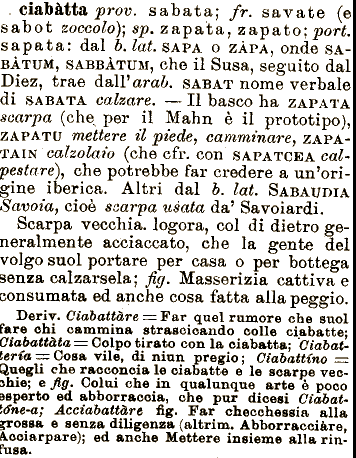 ciabàtta prov. sabata; fr. savate (e
sabot zoccolo); sp. zapata, zapato; port.
sapata: dal b. lat. SAPA o ZÀPA, onde SA-
BÀTUM, SABBÀTUM, che il Susa, seguito dal
Diez, trae dall'arab. SABAT nome verbale
di SABATA calzare. — Il basco ha ZAPATA
scarpa (che per il Mahn è il prototipo),
ZAPATU mettere il piede, camminare, ZAPA-
TAIN calzolaio (che cfr. con SAPATCEA cal-
pestare), che potrebbe far credere a un'ori-
gine iberica. Altri dal b. lat. SABAUDIA
Savoia, cioè scarpa usata da' Savoiardi.
Scarpa vecchia. logora, col di dietro ge-
neralmente acciaccato, che la gente del
volgo suol portare per casa o per bottega
senza calzarsela; fig. Masserizia cattiva e
consumata ed anche cosa fatta alla peggio.
Deriv. Ciabattàre = Far quel rumore che suol
fare chi cammina strascicando colle ciabatte;
Ciabattàta = Colpo tirato con la ciabatta; Ciabat-
tería = Cosa vile, di niun pregio; Ciabattíno =
Quegli che racconcia le ciabatte e le scarpe vec-
chie; e fig. Colui che in qualunque arte è poco
esperto ed abborraccia, che pur dicesi Ciabat-
tóne-a; Acciabattàre fig. Far checchessia alla
grossa e senza diligenza (altrim. Abborracciàre,
Acciarpare); ed anche Mettere insieme alla rin-
fusa.